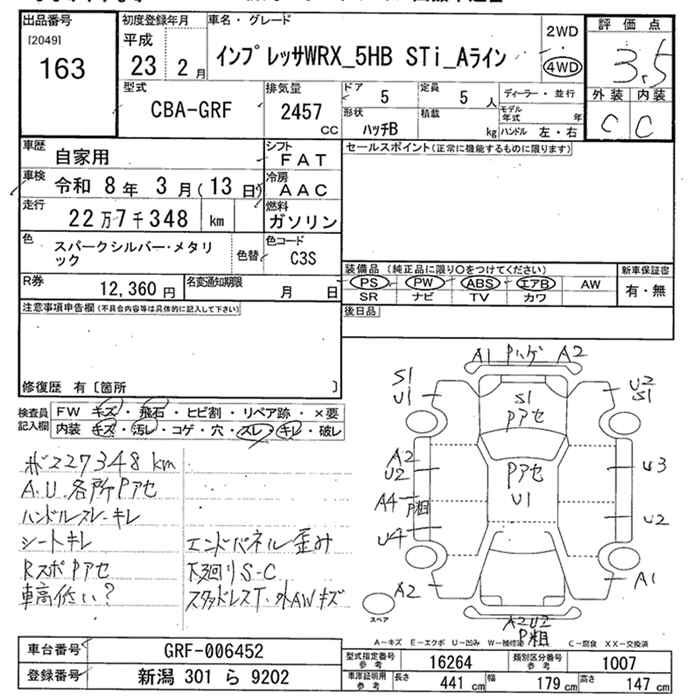 出品番号
[2049]
163
初度登録年月
平成
23 2月
車名・グレード
インプレッサWRX_5HB STi_Aライン
2WD
4WD
評価点
3.5
外装 内装
C C
型式
CBA-GRF
排気量
2457
cc
ドア
5
定員
5人
ディーラー・並行
形状
ハッチB
積載
kg
モデル年式 年
ハンドル 左・右
車歴
自家用
シフト
FAT
車検
令和 8年 3月(13日)
冷房
AAC
走行
22万7千348 km
燃料
ガソリン
色
スパークシルバー・メタリック
色替
色コード
C3S
R券
12,360円
名変通知期限
月 日
セールスポイント(正常に機能するものに限ります)
装備品(純正品に限り○をつけてください)
PS PW ABS エアB AW
SR ナビ TV カワ
新車保証書
有・無
後日品
注意事項申告欄(不具合内容等は具体的に記入して下さい)
修復歴 有〔箇所 〕
検査員記入欄
FW キズ・飛石・ヒビ割・リペア跡・×要
内装 キズ・汚レ・コゲ・穴・スレ・キレ・破レ
227348km
A.U.各所Pアセ
ハンドルスレ・キレ
シートキレ
RスポPアセ
車高低い?
エンドパネル歪み
下廻りS-C
スタッドレスT・外AWキズ
A1 Pハゲ A2
S1
U1
S1
Pアセ
U2
S1
A2
U2
Pアセ
U1
U3
A4
P粗
U2
U4
A2
A1
A2U2
P粗
スペア
A-キズ E-エクボ U-凹み W-補修跡 C-腐食 XX-交換済
車台番号
GRF-006452
登録番号
新潟 301 ら 9202
型式指定番号
参考
16264
類別区分番号
参考
1007
車庫証明用
参考
長さ 441 cm
幅 179 cm
高さ 147 cm